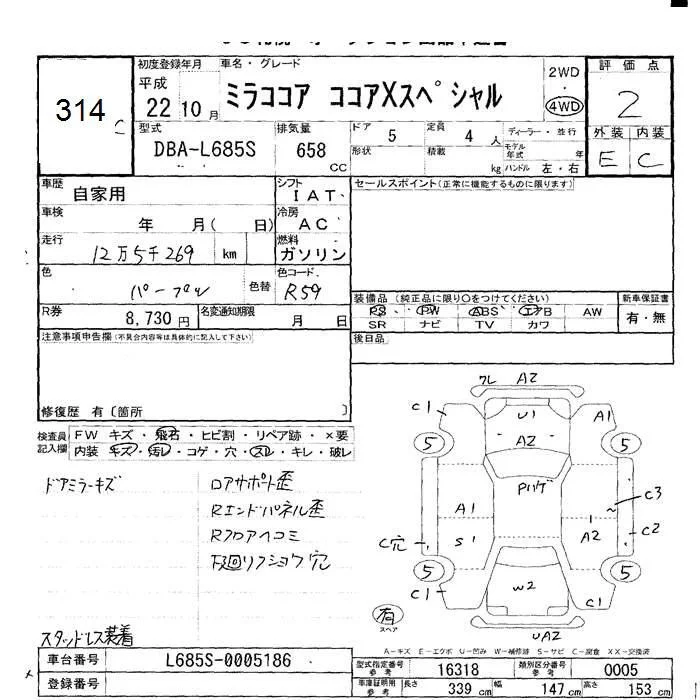 初度登録年月 車名・グレード 評価点
平成 22 10月 ミラココア ココアXスペシャル 2WD 4WD 2
314 C
型式 排気量 ドア 5 定員 4人 ディーラー・並行 外装 内装
DBA-L685S 658 CC 形状 積載 kg モデル年式 年 ハンドル 左・右 E C
車歴 自家用 シフト IAT セールスポイント(正常に機能するものに限ります)
車検 年 月( 日) 冷房 AC
走行 12万5千269 km 燃料 ガソリン
色 パープル 色替 色コード R59
装備品(純正品に限り○をつけてください) 新車保証書
PS PW ABS エアB AW 有・無
R券 8,730円 名変通知期限 月 日 SR ナビ TV カワ
注意事項申告欄(不具合内容等は具体的に記入して下さい) 後日品
修復歴 有〔箇所 〕
検査員記入欄 FW キズ・飛石・ヒビ割・リペア跡・×要
内装 キズ・汚レ・コゲ・穴・スレ・キレ・破レ
ドアミラーキズ ロアサポート歪
Rエンドパネル歪
Rフロアヘコミ
下廻リフショウ穴
スタッドレス装着
ワレ A2
C1 U1 A1
5 A2 5
Pハゲ
A1 C3
C穴 S1 A2 C2
5 5
C1 W2 C1
有 スペア UA2
A-キズ E-エクボ U-凹み W-補修跡 S-サビ C-腐食 XX-交換済
車台番号 L685S-0005186 型式指定番号 参考 16318 類別区分番号 参考 0005
登録番号 車庫証明用 参考 長さ 339cm 幅 147cm 高さ 153cm